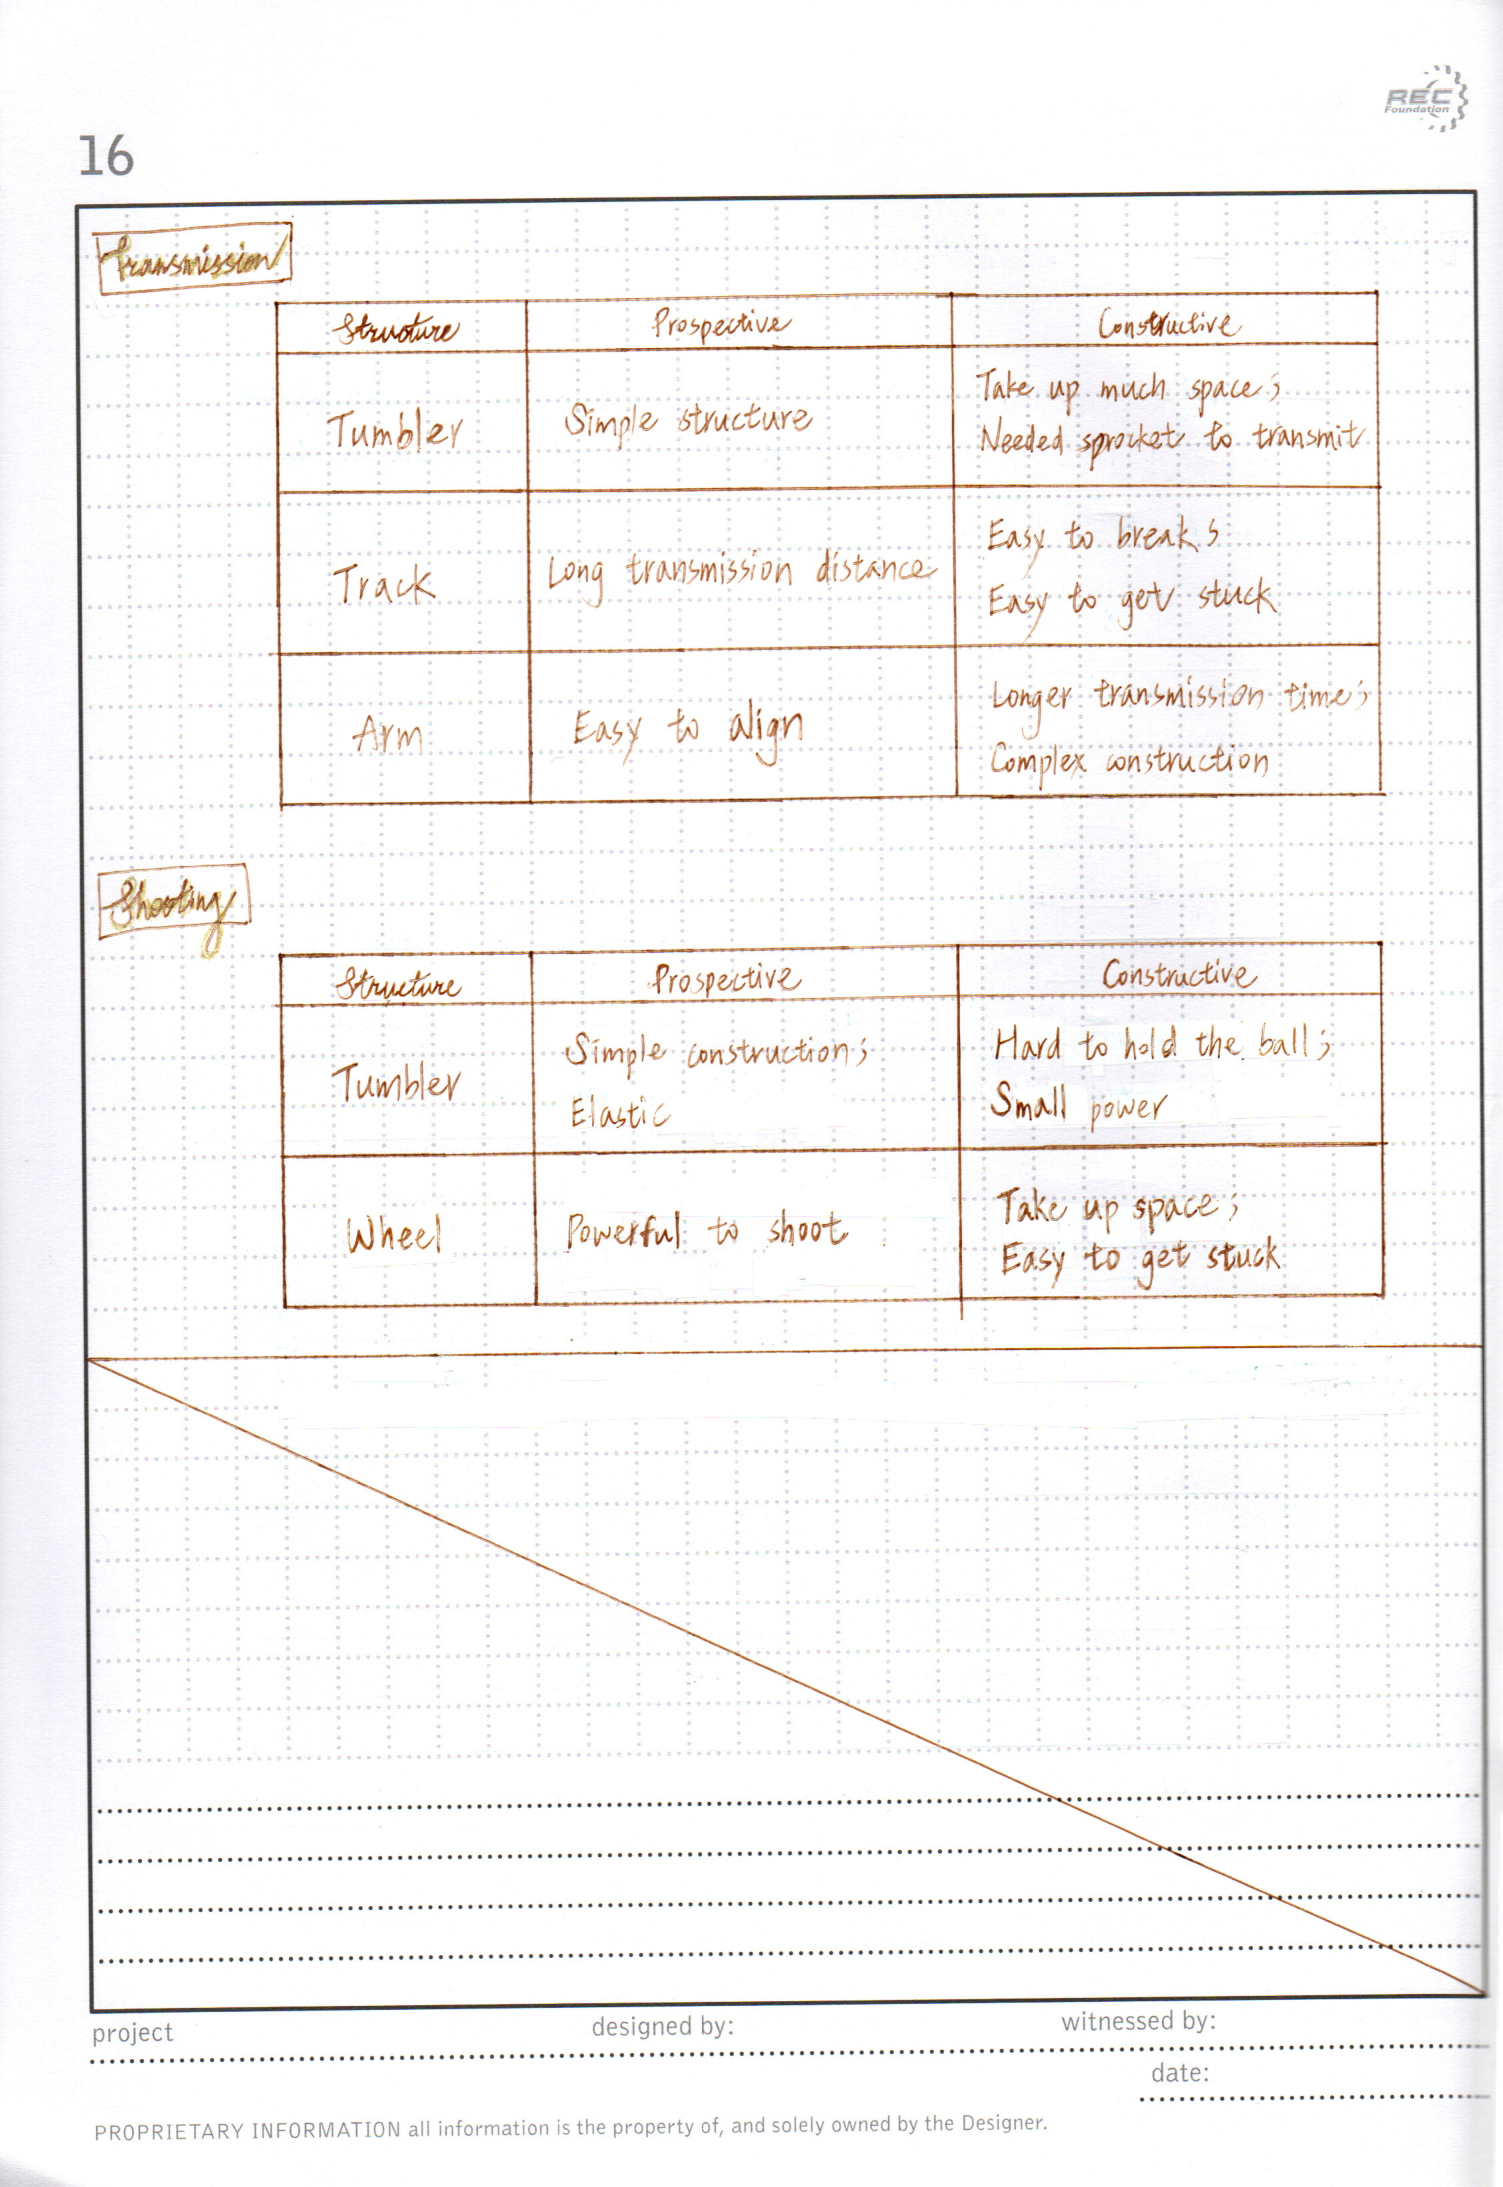 REC
Foundation
16
Transmission
Structure Prospective Constructive
Tumbler Simple structure Take up much space;
Needed sprocket to transmit
Track Long transmission distance Easy to break;
Easy to get stuck
Arm Easy to align Longer transmission time;
Complex construction
Shooting
Structure Prospective Constructive
Tumbler Simple construction; Hard to hold the ball;
Elastic Small power
Wheel Powerful to shoot Take up space;
Easy to get stuck
project designed by: witnessed by:
date:
PROPRIETARY INFORMATION all information is the property of, and solely owned by the Designer.